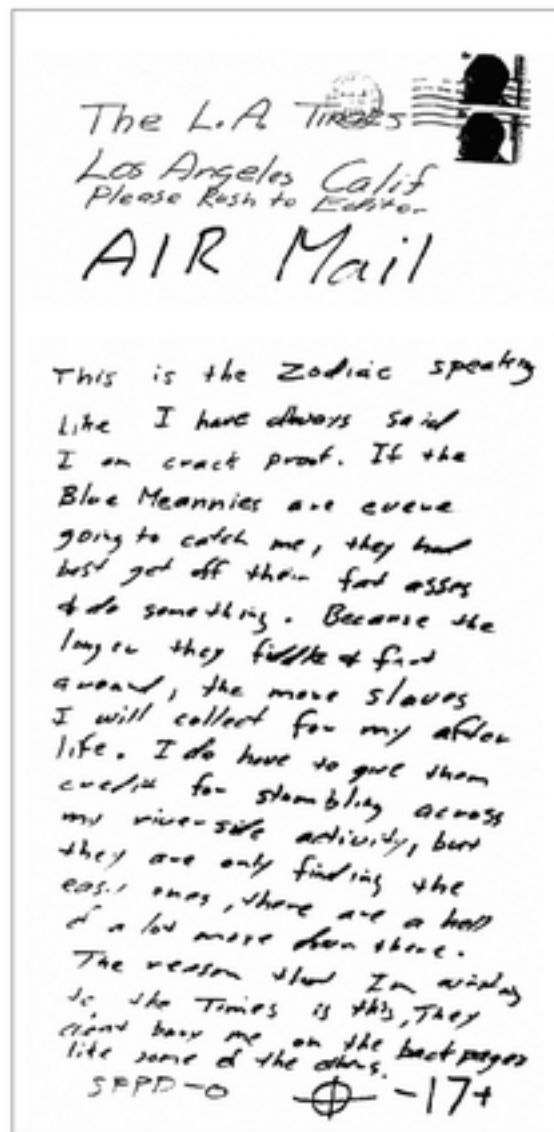 The L.A. Times
Los Angeles Calif
Please Rush to Editor
AIR Mail
This is the Zodiac speaking
Like I have always said
I am crack proof. If the
Blue Meannies are evere
going to catch me, they had
best get off their fat asses
& do something. Because the
longer they fiddle & fart
around, the more slaves
I will collect for my after
life. I do have to give them
credit for stumbling across
my riverside activity, but
they are only finding the
easy ones, there are a hell
of a lot more down there.
The reason that Im writing
to the Times is this, They
dont bury me on the back pages
like some of the others.
SFPD-0 -17+